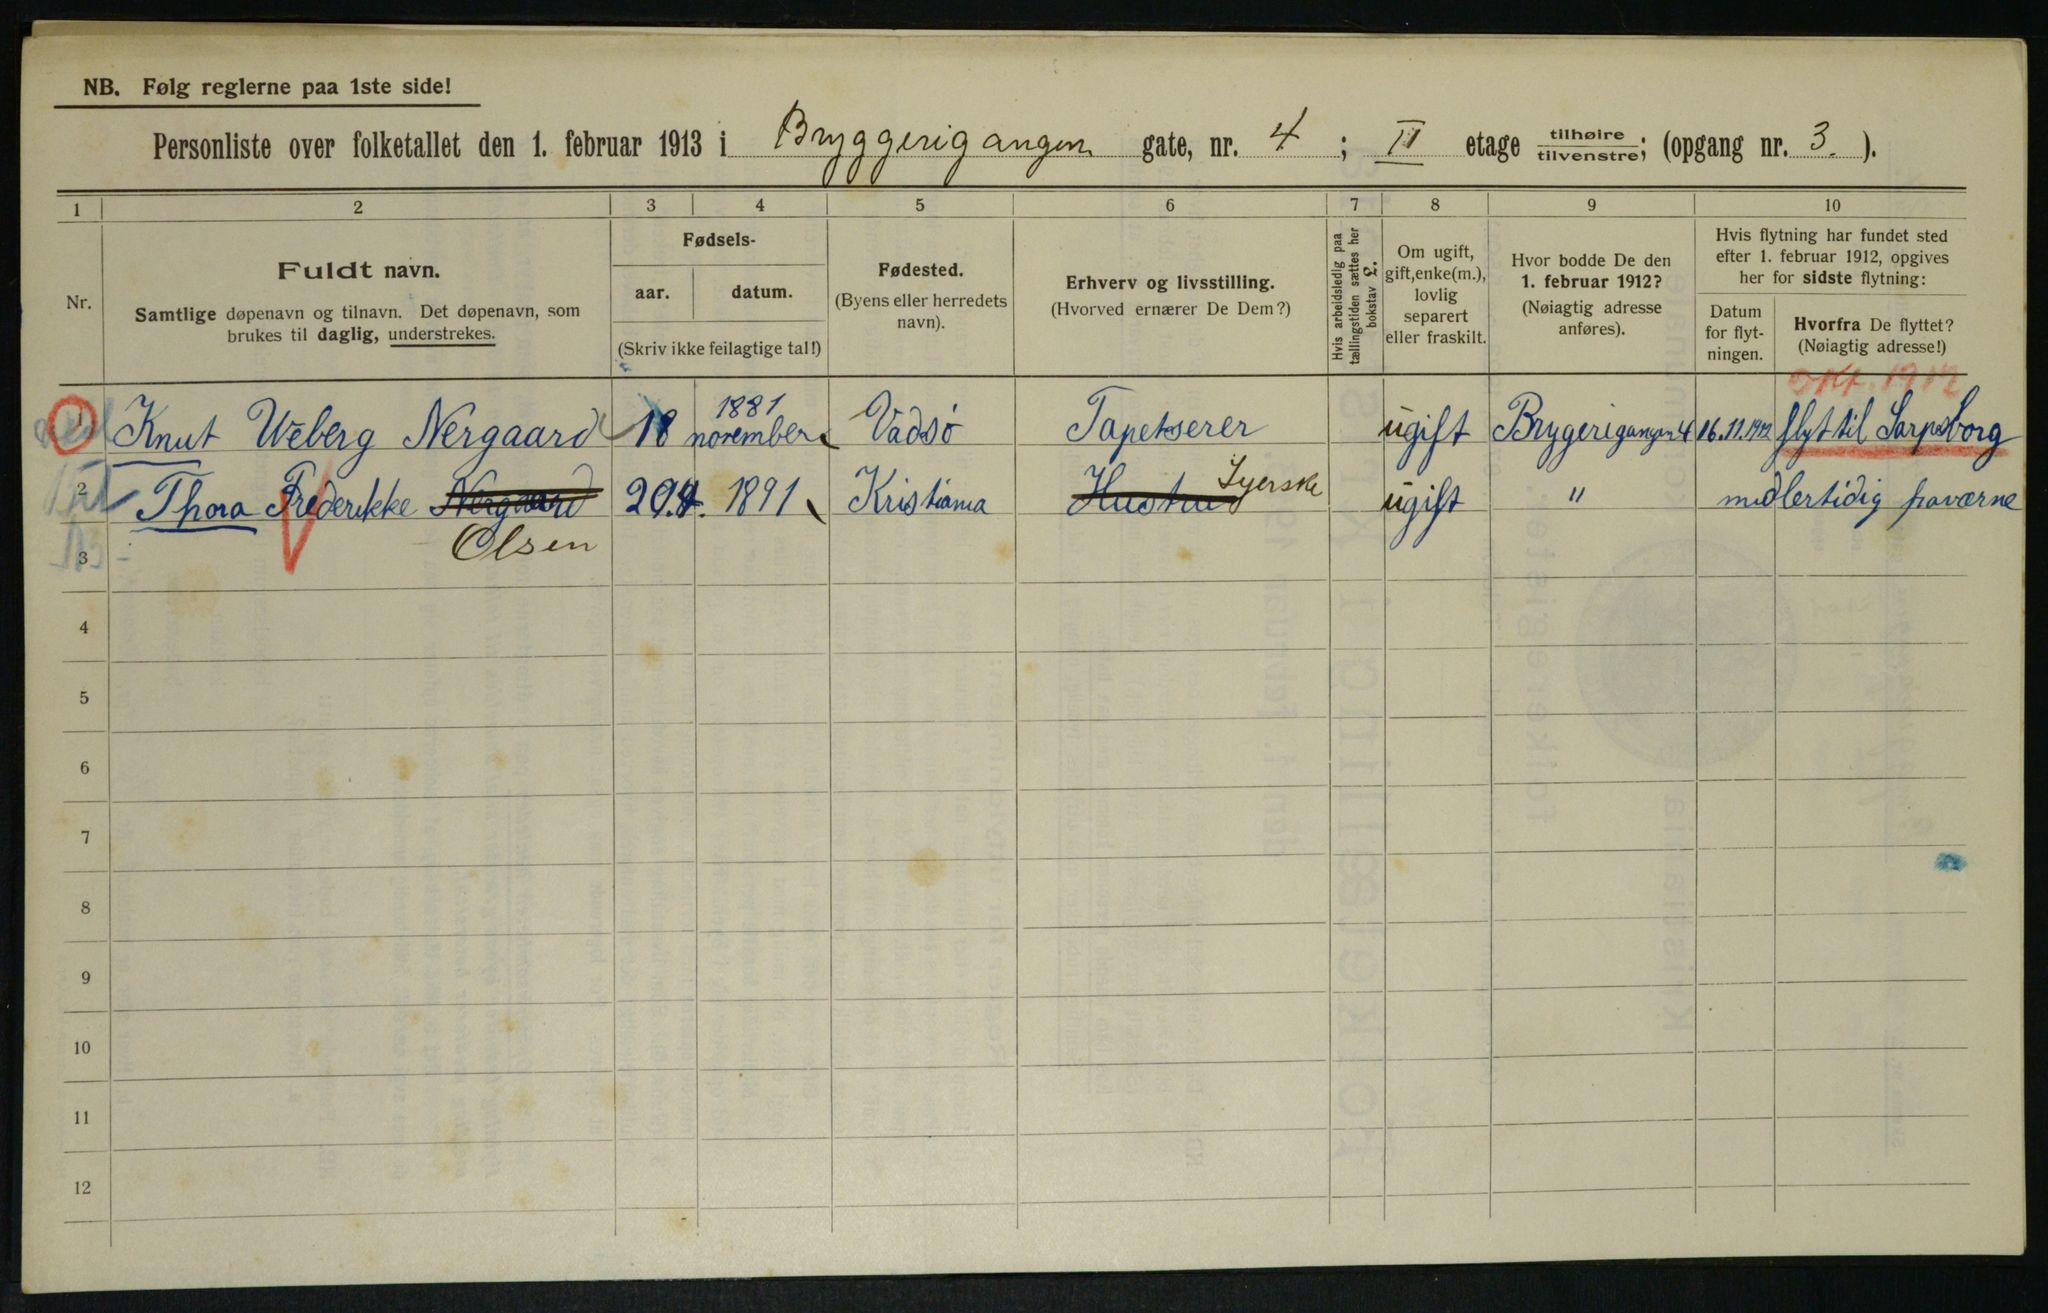 NB. Følg reglerne paa 1ste side!
Personliste over folketallet den 1. februar 1913 i Bryggerigangen gate, nr. 4 ; II etage tilhøire/tilvenstre; (opgang nr. 3. ).
1 2 3 4 5 6 7 8 9 10
Nr.
Fuldt navn.
Samtlige døpenavn og tilnavn. Det døpenavn, som
brukes til daglig, understrekes.
Fødsels-
aar. datum.
(Skriv ikke feilagtige tal!)
Fødested.
(Byens eller herredets
navn).
Erhverv og livsstilling.
(Hvorved ernærer De Dem?)
Hvis arbeidsledig paa
tællingstiden sættes her
bokstav L.
Om ugift,
gift, enke(m.),
lovlig
separert
eller fraskilt.
Hvor bodde De den
1. februar 1912?
(Nøiagtig adresse
anføres).
Hvis flytning har fundet sted
efter 1. februar 1912, opgives
her for sidste flytning:
Datum
for flyt-
ningen.
Hvorfra De flyttet?
(Nøiagtig adresse!)
Okt. 1912
1881
1 Knut Weberg Nergaard 18 november Vadsö Tapetserer ugift Brygerigangen 4 16.11.1912 flyt til Sarpsborg
Syerske
2 Thora Frederikke Nergaard 29.4. 1891 Kristiania Hustru ugift " midlertidig fraværne
Olsen
3
4
5
6
7
8
9
10
11
12